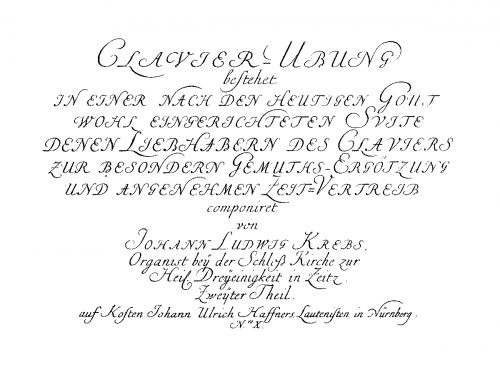 CLAVIER-UBUNG
bestehet
IN EINER NACH DEN HEUTIGEN GOUT
WOHL EINGERICHTETEN SVITE
DENEN LIEBHABERN DES CLAVIERS
ZUR BESONDERN GEMÜTHS-ERGÖTZUNG
UND ANGENEHMEN ZEIT=VERTREIB
componiret
von
JOHANN LUDWIG KREBS,
Organist beÿ der Schloß Kirche zur
Heil. Dreÿeinigkeit in Zeitz.
Zweÿter Theil.
auf Kosten Johann Ulrich Haffners, Lautenisten in Nürnberg.
N.ro X.